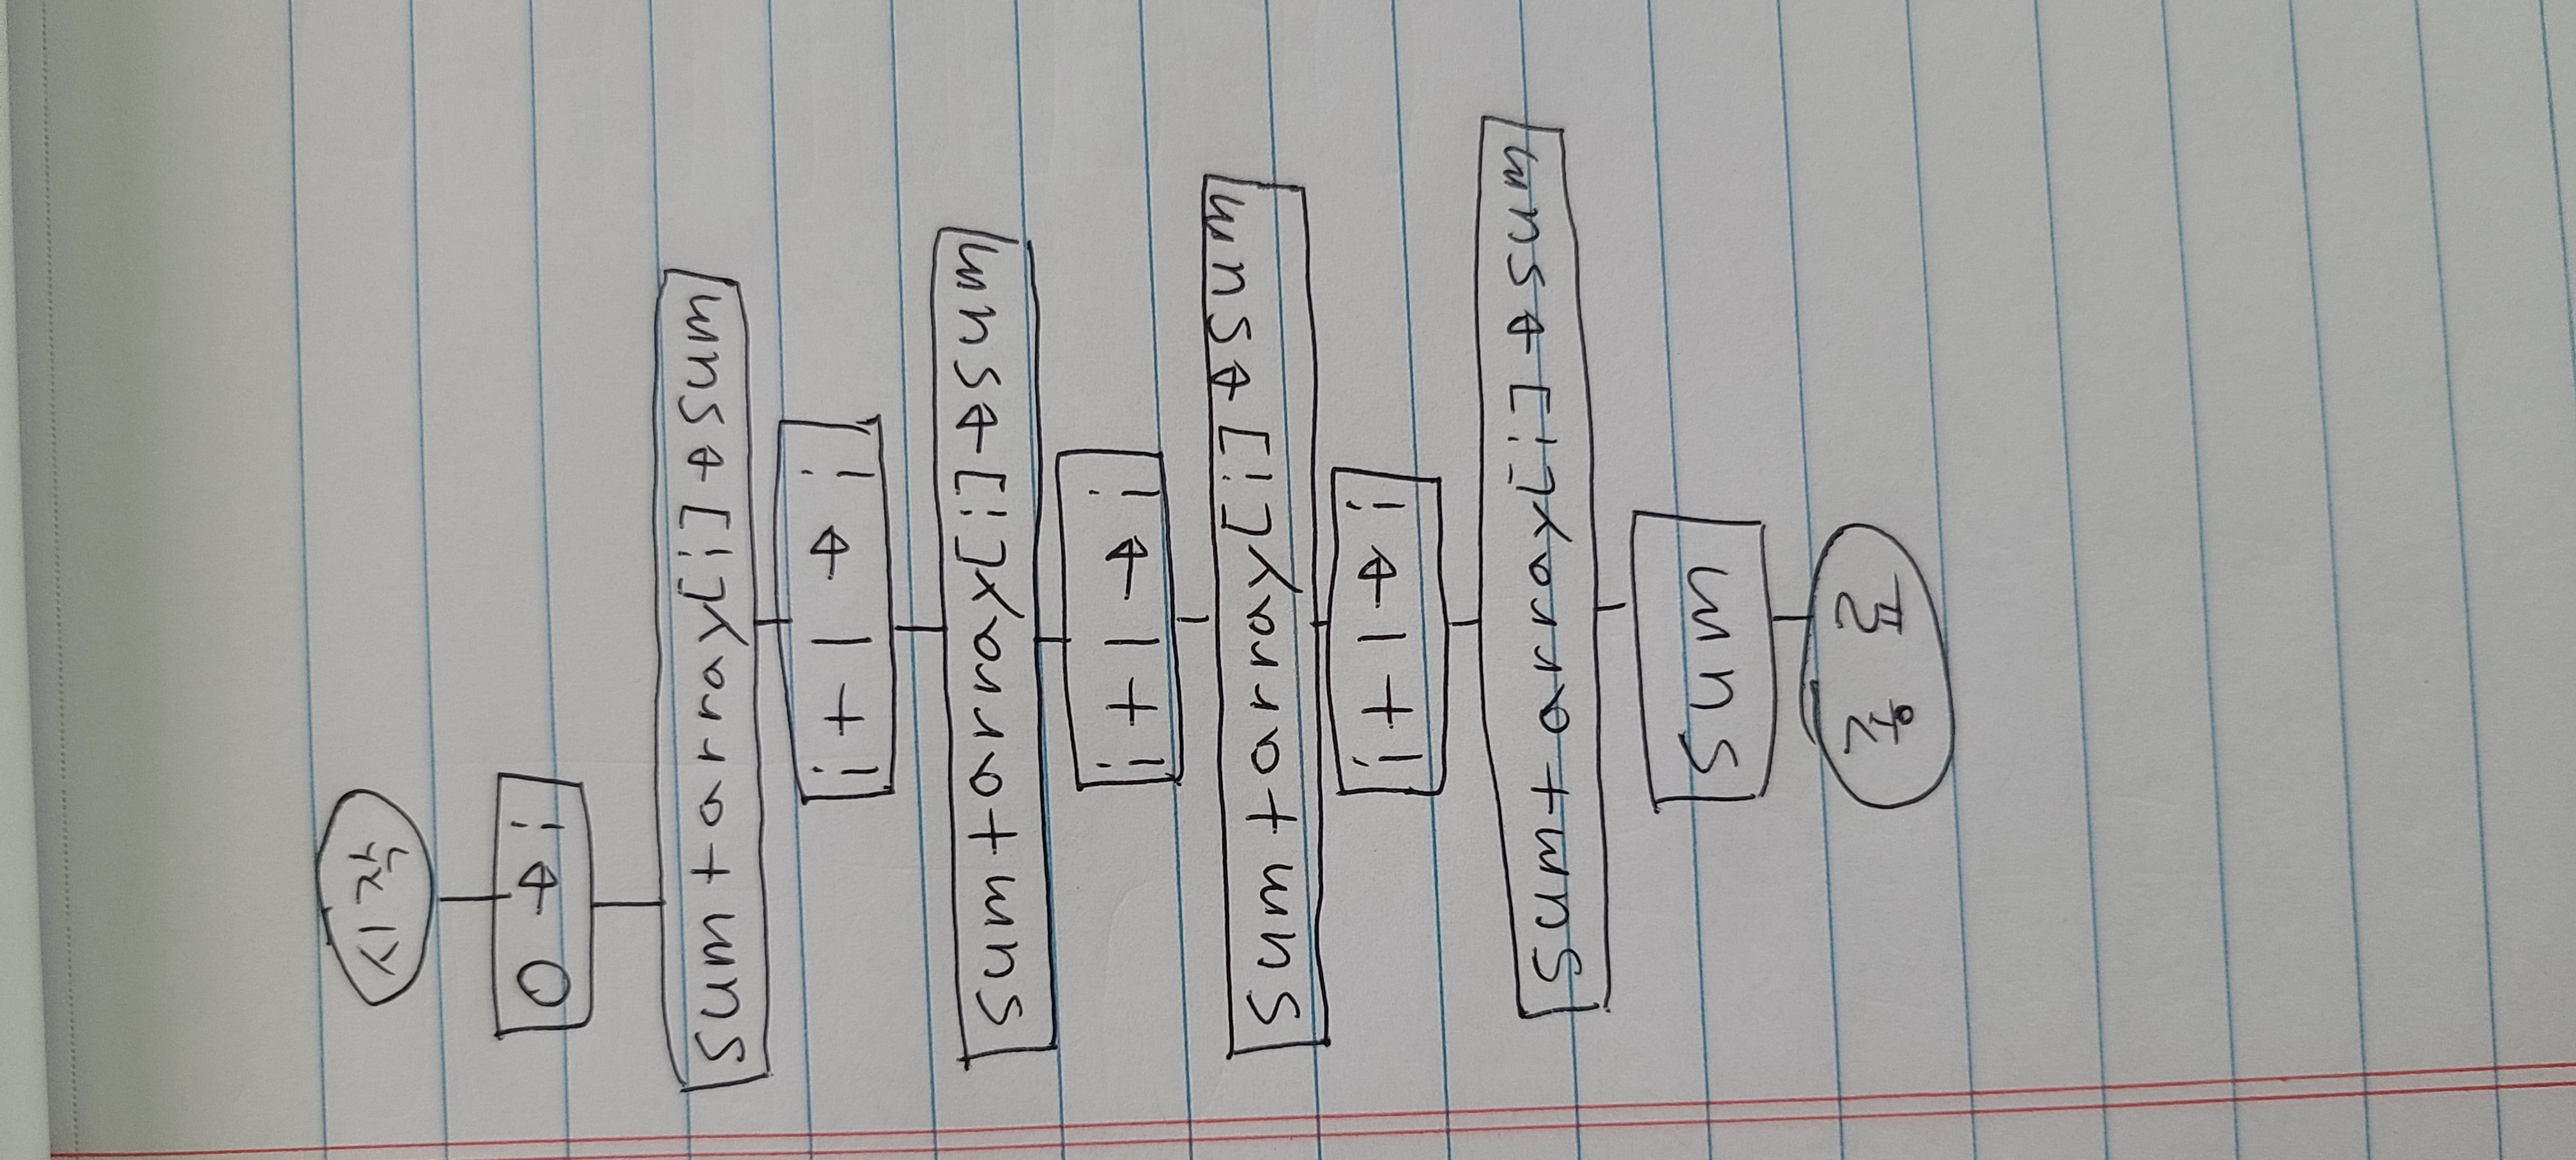 시작
0 → i
sum+array[i]→sum
i+1 → i
sum+array[i]→sum
i+1→i
sum+array[i]→sum
i+1→i
sum+array[i]→sum
sum
종료